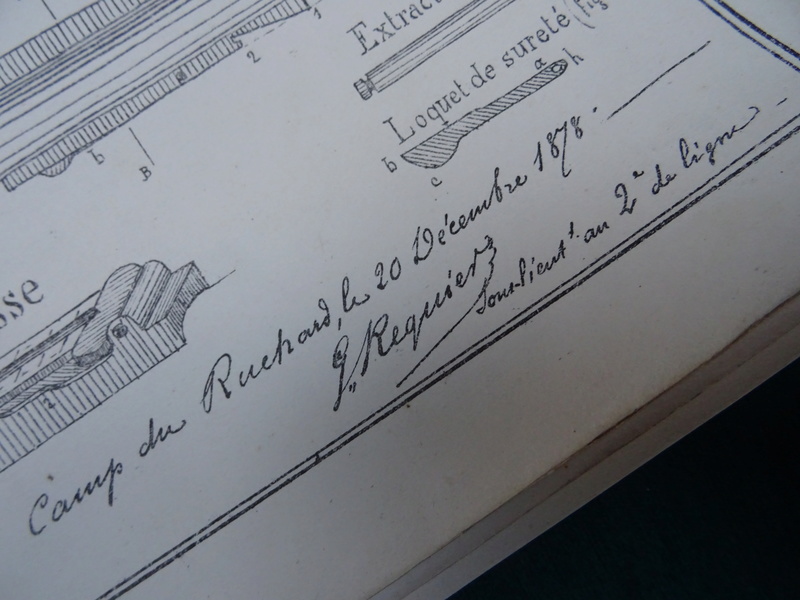 1
2
Extract
Loquet de sureté (Fig
a
h
b
c
b
B
sse
2
Camp du Ruchard, le 20 Décembre 1878.
J. Requier
Sous-lieut! au 2e de ligne